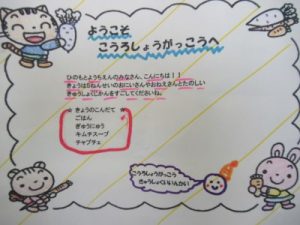 ようこそ
こうろしょうがっこうへ
ひのもとようちえんのみなさん、こんにちは！！
きょうは5ねんせいのおにいさんやおねえさんとたのしい
きゅうしょくじかんをすごしてくださいね。
★きょうのこんだて★
ごはん
ぎゅうにゅう
キムチスープ
チャプチェ
こうろしょうがっこう
きゅうしょくいいんかい